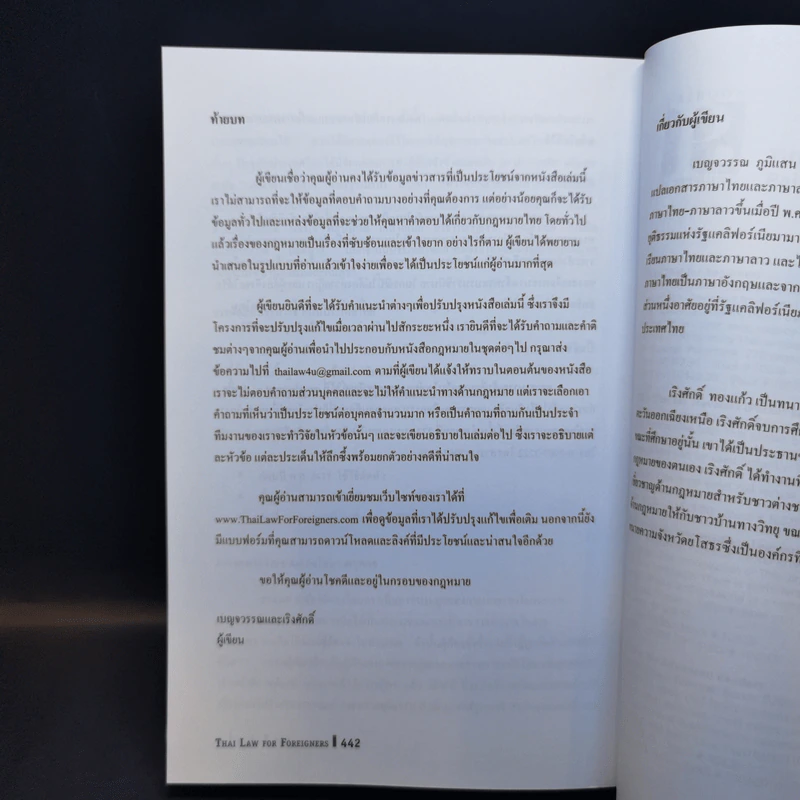 ท้ายบท
ผู้เขียนเชื่อว่าคุณผู้อ่านคงได้รับข้อมูลข่าวสารที่เป็นประโยชน์จากหนังสือเล่มนี้
เราไม่สามารถที่จะให้ข้อมูลที่ตอบคำถามบางอย่างที่คุณต้องการ แต่อย่างน้อยคุณก็จะได้รับ
ข้อมูลทั่วไปและแหล่งข้อมูลที่จะช่วยให้คุณหาคำตอบได้เกี่ยวกับกฎหมายไทย โดยทั่วไป
แล้วเรื่องของกฎหมายเป็นเรื่องที่ซับซ้อนและเข้าใจยาก อย่างไรก็ตาม ผู้เขียนได้พยายาม
นำเสนอในรูปแบบที่อ่านแล้วเข้าใจง่ายเพื่อจะได้เป็นประโยชน์แก่ผู้อ่านมากที่สุด
ผู้เขียนยินดีที่จะได้รับคำแนะนำต่างๆเพื่อปรับปรุงหนังสือเล่มนี้ ซึ่งเราจึงมี
โครงการที่จะปรับปรุงแก้ไขเมื่อเวลาผ่านไปสักระยะหนึ่ง เรายินดีที่จะได้รับคำถามและคำติ
ชมต่างๆจากคุณผู้อ่านเพื่อนำไปประกอบกับหนังสือกฎหมายในชุดต่อๆไป กรุณาส่ง
ข้อความไปที่ thailaw4u@gmail.com ตามที่ผู้เขียนได้แจ้งให้ทราบในตอนต้นของหนังสือ
เราจะไม่ตอบคำถามส่วนบุคคลและจะไม่ให้คำแนะนำทางด้านกฎหมาย แต่เราจะเลือกเอา
คำถามที่เห็นว่าเป็นประโยชน์ต่อบุคคลจำนวนมาก หรือเป็นคำถามที่ถามกันเป็นประจำ
ทีมงานของเราจะทำวิจัยในหัวข้อนั้นๆ และจะเขียนอธิบายในเล่มต่อไป ซึ่งเราจะอธิบายแต่
ละหัวข้อ แต่ละประเด็นให้ลึกซึ้งพร้อมยกตัวอย่างคดีที่น่าสนใจ
คุณผู้อ่านสามารถเข้าเยี่ยมชมเว็บไซท์ของเราได้ที่
www.ThaiLawForForeigners.com เพื่อดูข้อมูลที่เราได้ปรับปรุงแก้ไขเพิ่มเติม นอกจากนี้ยัง
มีแบบฟอร์มที่คุณสามารถดาวน์โหลดและลิงค์ที่มีประโยชน์และน่าสนใจอีกด้วย
ขอให้คุณผู้อ่านโชคดีและอยู่ในกรอบของกฎหมาย
เบญจวรรณและเริงศักดิ์
ผู้เขียน
THAI LAW FOR FOREIGNERS 442
เกี่ยวกับผู้เขียน
เบญจวรรณ ภูมิแสน
แปลเอกสารภาษาไทยและภาษาล
ภาษาไทย-ภาษาลาวขึ้นเมื่อปี พ.ศ
ยุติธรรมแห่งรัฐแคลิฟอร์เนียมามา
เรียนภาษาไทยและภาษาลาว และไ
ภาษาไทยเป็นภาษาอังกฤษและจาก
ส่วนหนึ่งอาศัยอยู่ที่รัฐแคลิฟอร์เนีย
ประเทศไทย
เริงศักดิ์ ทองแก้ว เป็นทนา
ตะวันออกเฉียงเหนือ เริงศักดิ์จบการศึ
ขณะที่ศึกษาอยู่นั้น เขาได้เป็นประธาน
กฎหมายของตนเอง เริงศักดิ์ ได้ทำงาน
เชี่ยวชาญด้านกฎหมายสำหรับชาวต่าง
ด้านกฎหมายให้กับชาวบ้านทางวิทยุ ขณ
ทนายความจังหวัดยโสธรซึ่งเป็นองค์กร